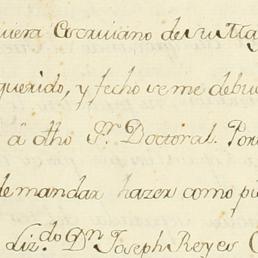 uera Escriuano de su Mag
querido, y fecho se me debue
â otho Sr. Doctoral. Por
demandar hazer como pi
Liz.do Dn Joseph Reyes